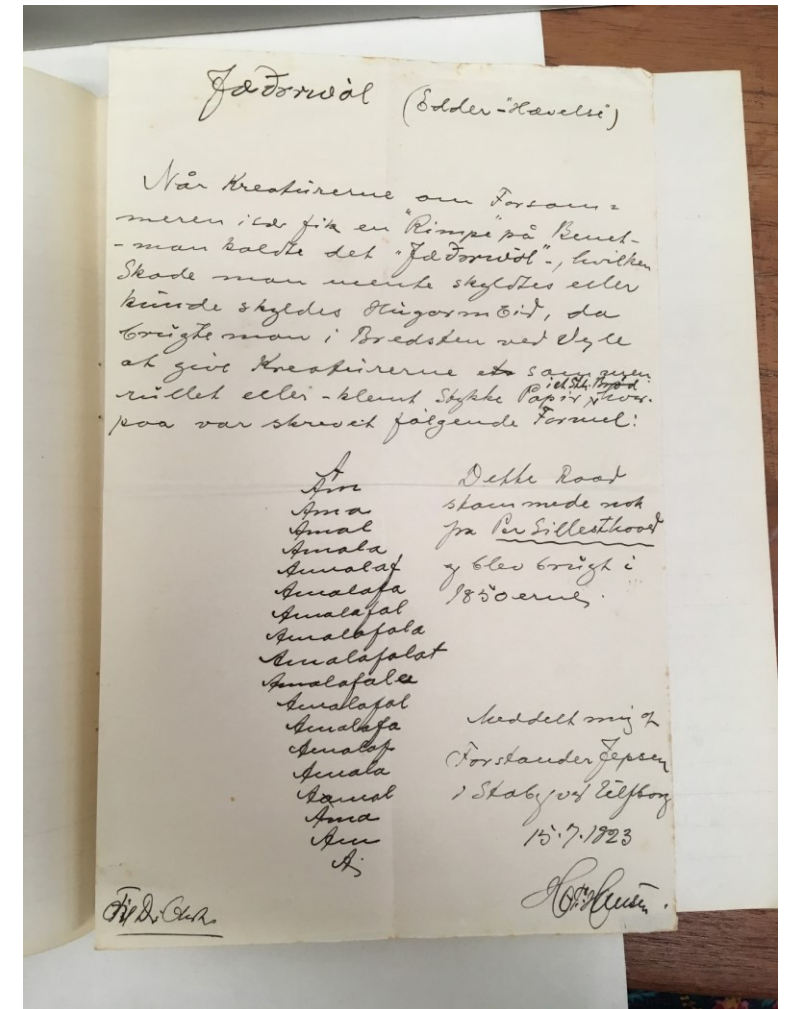 Jæđərwòl (Edder-Hævelse)
Når Kreatúrerne om Forsom=
meren især fik en "Rimpe" på Benet-
-man kaldte det "Jæđərwòl"-, hvilken
Skade man mente skyldtes eller
kúnde skyldes Húgorm Eid, da
brúgte man i Bredsten ved Vejle
at give Kreatúrerne et sammen
rúllet eller -klemt Stykke Papir i et St. Brød, hvor-
paa var skrevet følgende Formel:
A
Am
Ama
Amal
Amala
Amalaf
Amalafa
Amalafal
Amalafala
Amalafalat
Amalafala
Amalafal
Amalafa
Amalaf
Amala
Aamal
Ama
Am
A;
Dette Raad
stammede nok
fra Per Sillesthoved
og blev brúgt i
1850 erne.
Meddelt mig af
Forstander Jepsen
i Staby ved Úlfborg
15.7.1923
Hansen.
Til Dr.